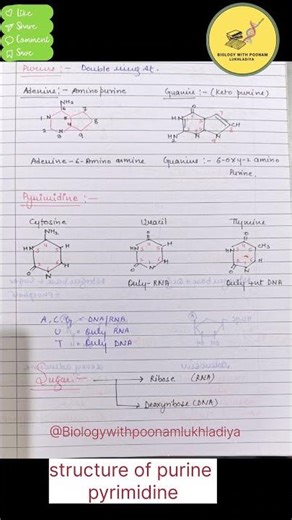 Like
Share
Comment
Save
BIOLOGY WITH POONAM
LUKHLADIYA
Purine :- Double ring St.
Adenine :- Aminopurine
Guanine :- (Keto purine)
NH₂
Adenine - 6 - Amino
Guanine - 6-oxy-2 amino
Purine.
Pyrimidine :-
Cytosine
Uracil
Thymine
NH₂
CH₃
Only - RNA
Only DNA
A, C, G = DNA/RNA
U = Only RNA
T = Only DNA
Sugar
Ribose (RNA)
Deoxyribose (DNA)
@Biologywithpoonamlukhladiya
structure of purine
pyrimidine